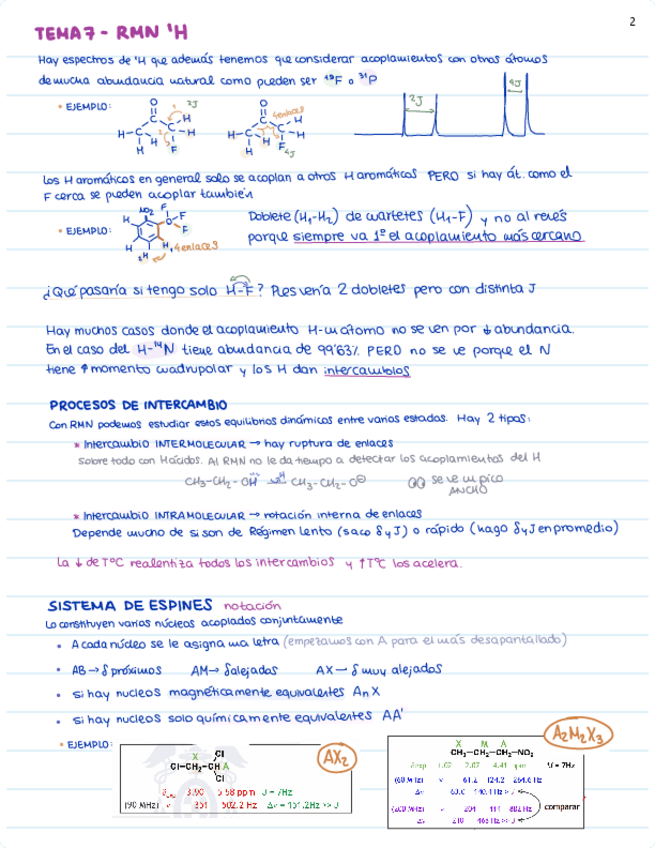 2
TEMA 7 - RMN ¹H
Hay espectros de ¹H que además tenemos que considerar acoplamientos con otros átomos
de mucha abundancia natural como pueden ser ¹⁹F o ³¹P
• EJEMPLO:
2J
4 enlaces
4J
2J
4J
Los H aromáticos en general solo se acoplan a otros H aromáticos PERO si hay át. como el
F cerca se pueden acoplar también
• EJEMPLO:
NO₂
4 enlaces
Doblete (H₁-H₂) de cuartetes (H₁-F) y no al revés
porque siempre va 1º el acoplamiento más cercano
¿Qué pasaría si tengo solo H-F? Pues vería 2 dobletes pero con distinta J
Hay muchos casos donde el acoplamiento H-un átomo no se ven por ↓ abundancia.
En el caso del H-¹⁴N tiene abundancia de 99'63% PERO no se ve porque el N
tiene ↑ momento cuadrupolar y los H dan intercambios
PROCESOS DE INTERCAMBIO
Con RMN podemos estudiar estos equilibrios dinámicos entre varios estados. Hay 2 tipos:
* Intercambio INTERMOLECULAR → hay ruptura de enlaces
Sobre todo con H ácidos. Al RMN no le da tiempo a detectar los acoplamientos del H
CH₃-CH₂-OH CH₃-CH₂-O⊖ se ve un pico
ANCHO
* Intercambio INTRAMOLECULAR → rotación interna de enlaces
Depende mucho de si son de Régimen lento (saco δ y J) o rápido (hago δ y J en promedio)
La ↓ de TºC realentiza todos los intercambios y ↑TºC los acelera.
SISTEMA DE ESPINES notación
Lo constituyen varios núcleos acoplados conjuntamente
• A cada núcleo se le asigna una letra (empezamos con A para el más desapantallado)
• AB → δ próximos AM → δ alejados AX — δ muy alejados
• si hay nucleos magnéticamente equivalentes AnX
• si hay nucleos solo químicamente equivalentes AA'
• EJEMPLO:
AX₂
X Cl
Cl-CH₂-CH A
Cl
3.90 5.58 ppm J = 7Hz
(90 MHz) ν 351 502.2 Hz Δν = 151.2Hz >> J
A₂M₂X₃
X M A
CH₃-CH₂-CH₂-NO₂
2.07 4.41 ppm J = 7Hz
(60 MHz) ν 61.2 124.2 264.6 Hz
Δν
ν comparar
Δν